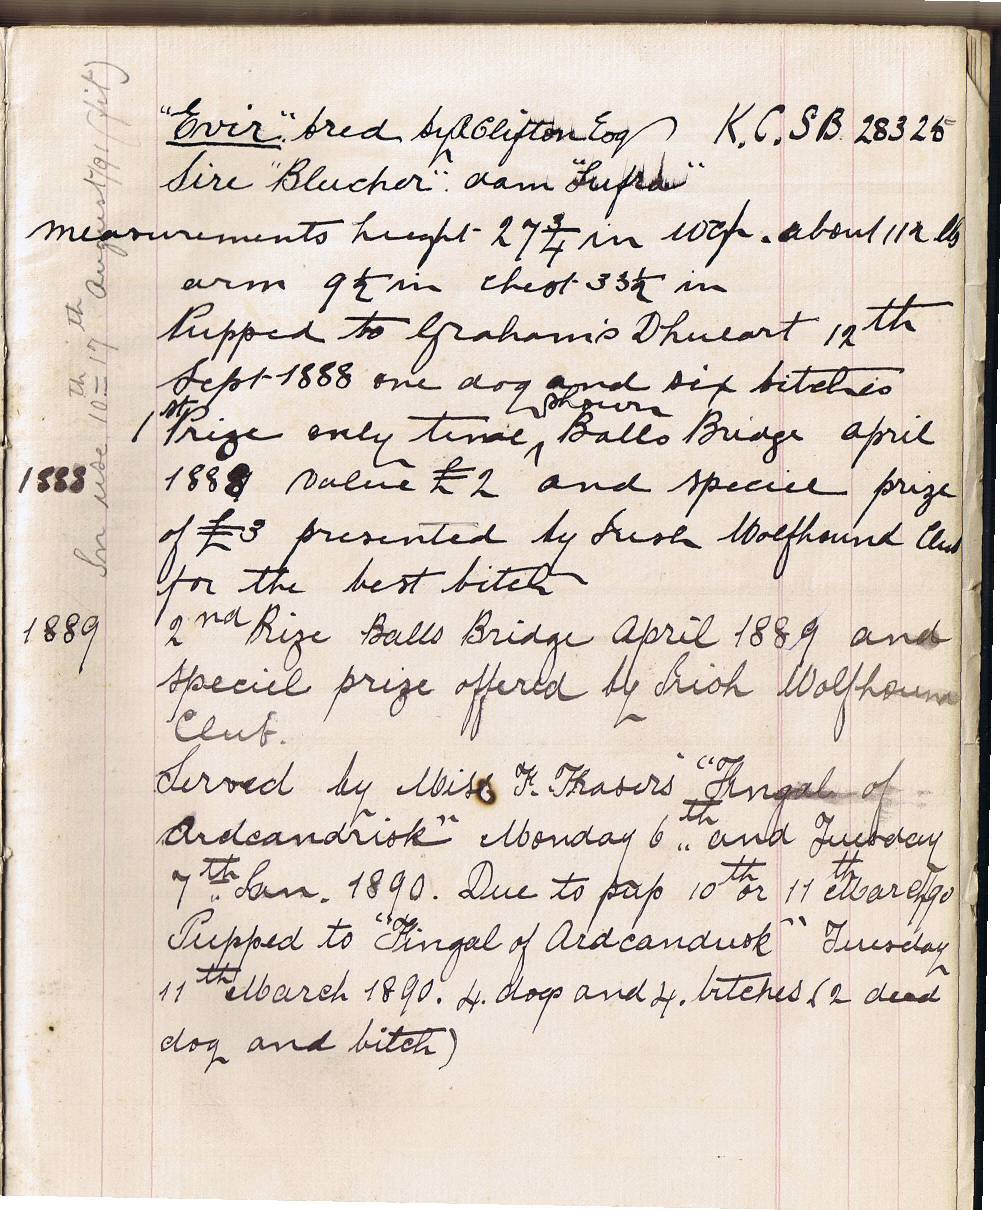 "Evir" bred by A Clifton Esq K.C.S.B. 28325
Sire "Blucher" dam "Lufra"
measurements height 27 3/4 in wgt. about 112 lbs
arm 9 1/2 in chest 33 1/2 in
Pupped to Graham's Dhulart 12th
Sept 1888 one dog and six bitches
1st Prize only time shown Balls Bridge april
1888 1888 value £2 and speciel prize
of £3 presented by Irish Wolfhound Club
for the best bitch
1889 2nd Prize Balls Bridge April 1889 and
speciel prize offered by Irish Wolfhoun
Club.
Served by Miss F. Frasers "Fingal of
Ardcandrisk" Monday 6th and Tuesday
7th Jan. 1890. Due to pup 10th or 11th March/90
Pupped to "Fingal of Ardcandusk" Tuesday
11th March 1890. 4. dogs and 4. bitches (2 dead
dog and bitch)
In use 10th = 17th August/91 (